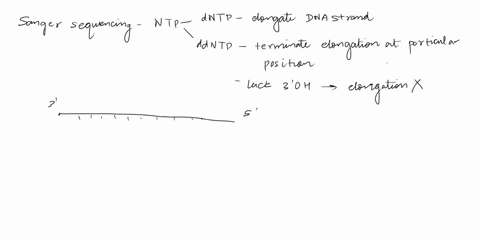 Sanger sequencing - NTP - dNTP - elongate DNA strand
ddNTP - terminate elongation at particular
position
- lack 3'OH → elongation X
3' 5'